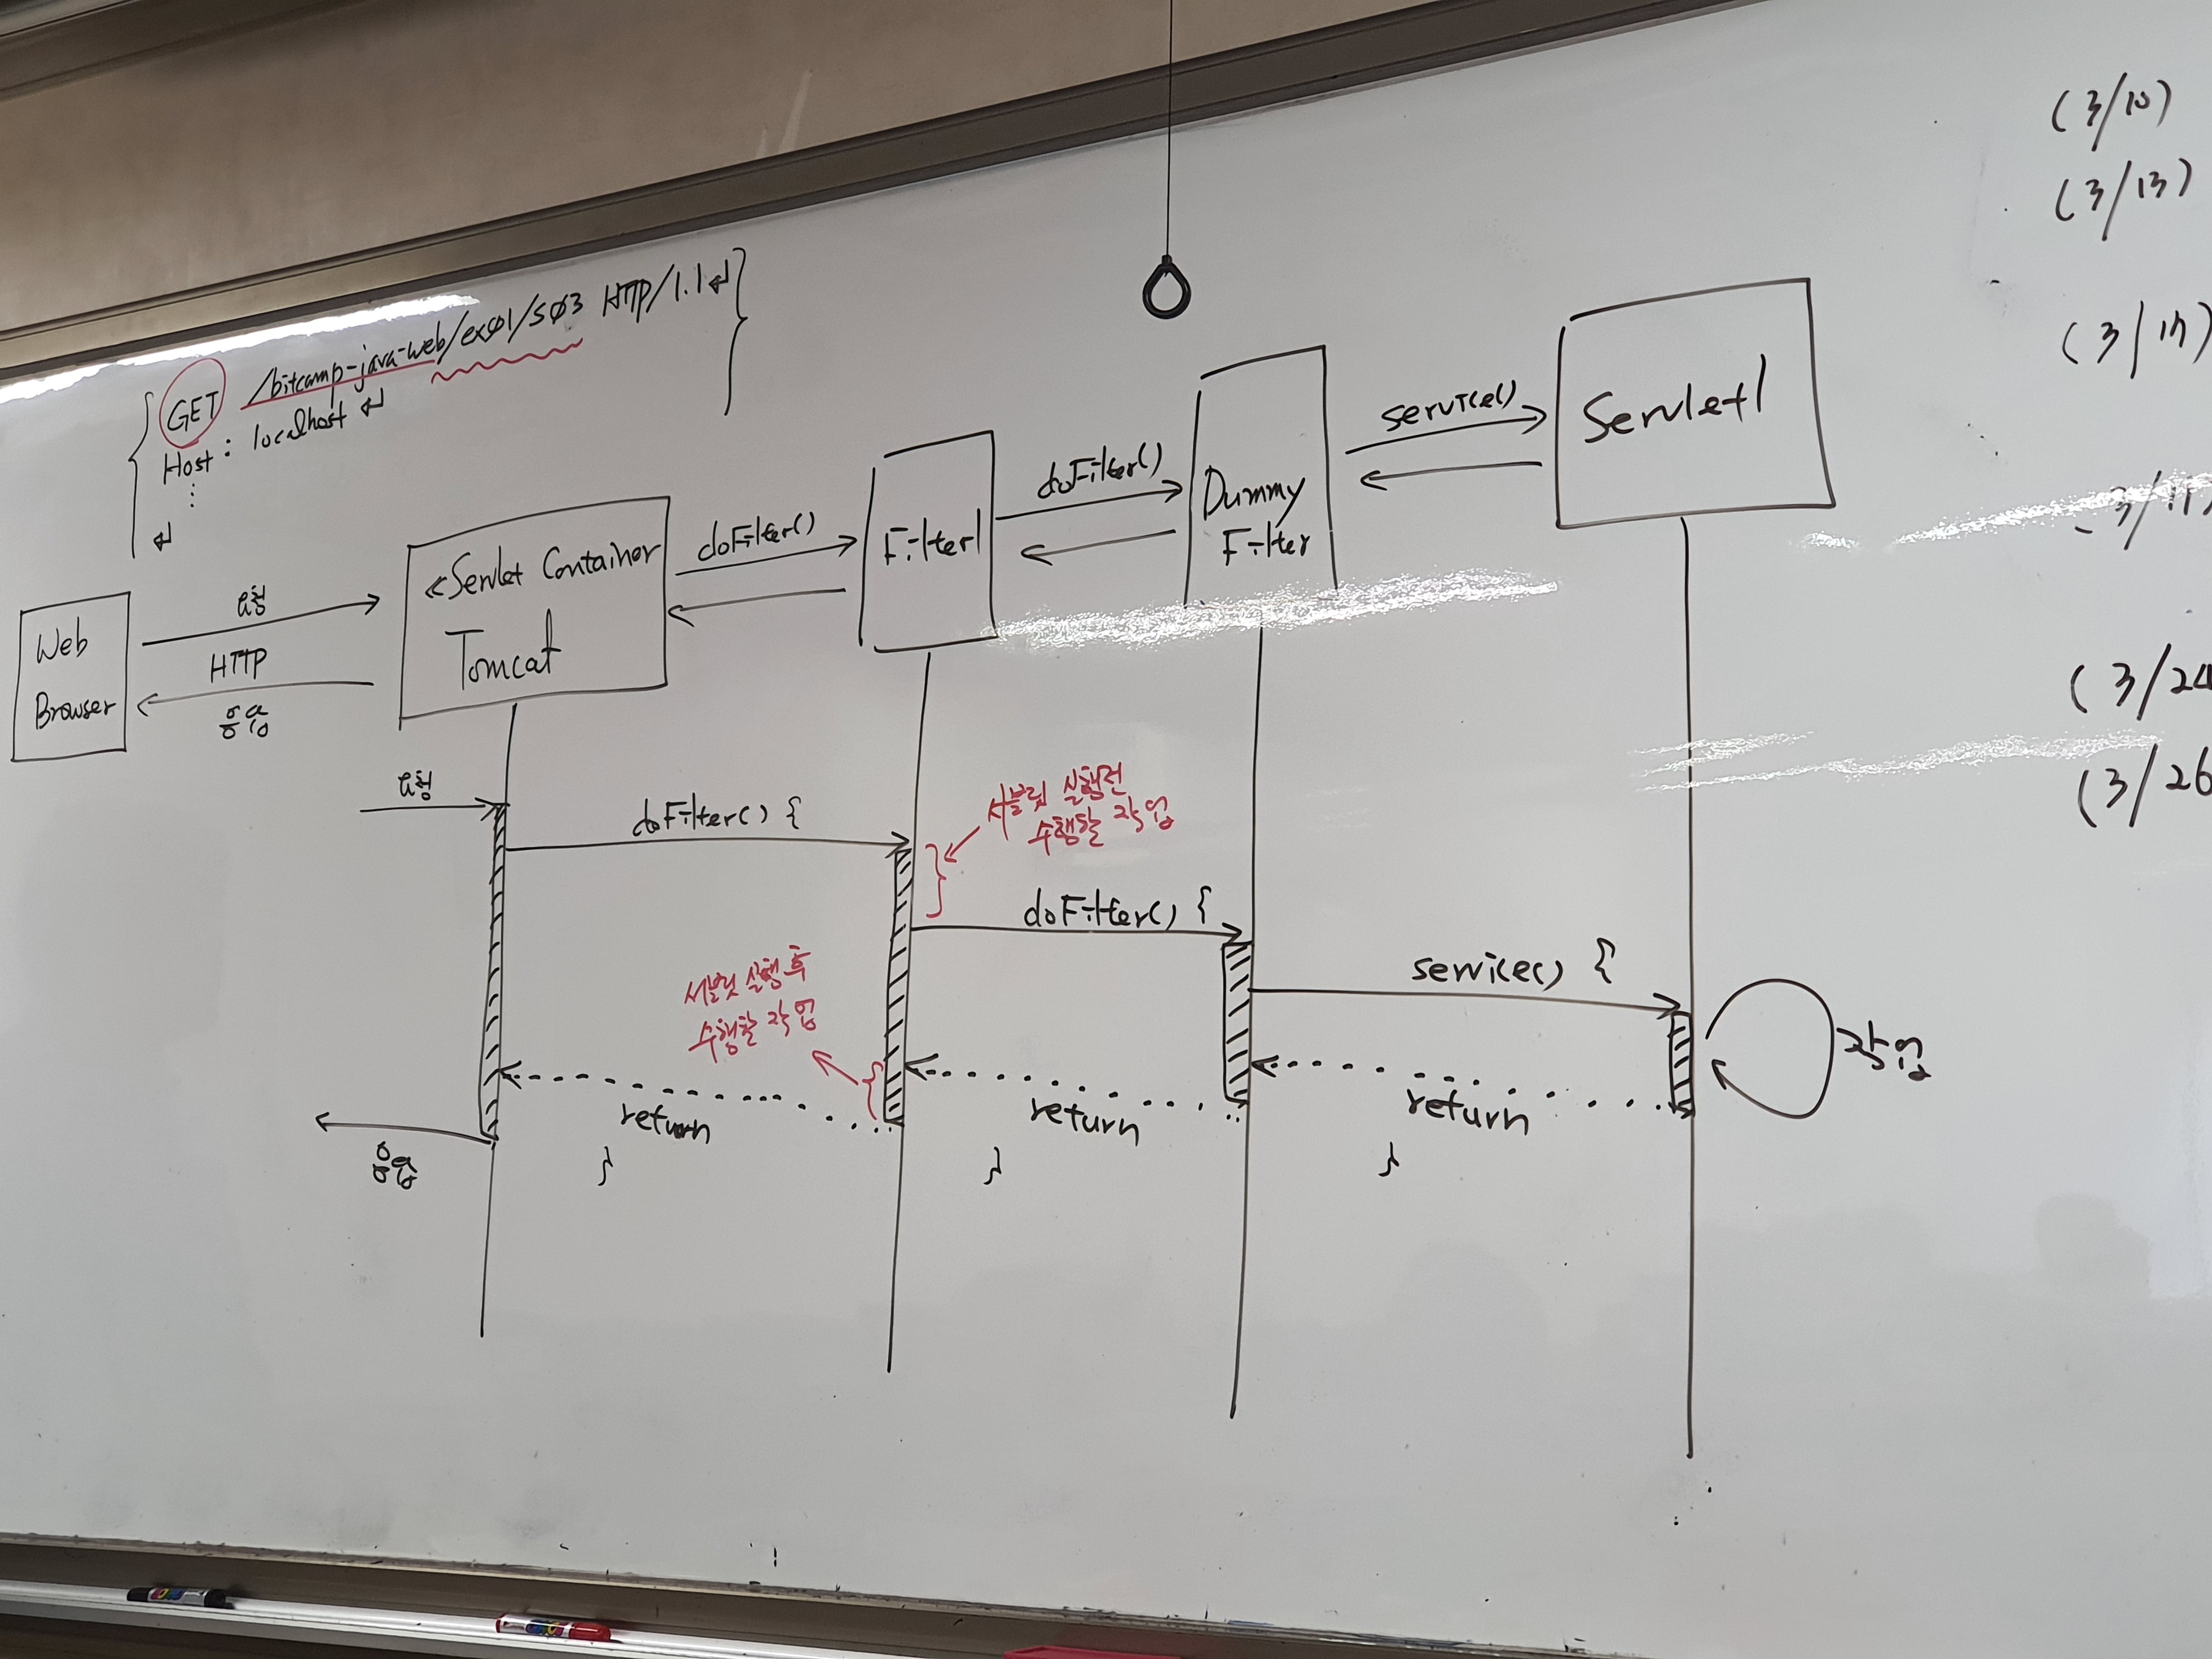 GET /bitcamp-java-web/exø1/sø3 HTTP/1.1↵
Host: localhost ↵
⋮
↵
(3/10)
(3/13)
(3/17)
(3/24
(3/26
Web
Browser
요청
HTTP
응답
<<Servlet Container
Tomcat
doFilter()
Filter1
doFilter()
Dummy
Filter
service()
Servlet1
요청
doFilter() {
서블릿 실행전
수행할 작업
doFilter() {
service() {
작업
서블릿 실행 후
수행할 작업
return
return
return
응답
}
}
}